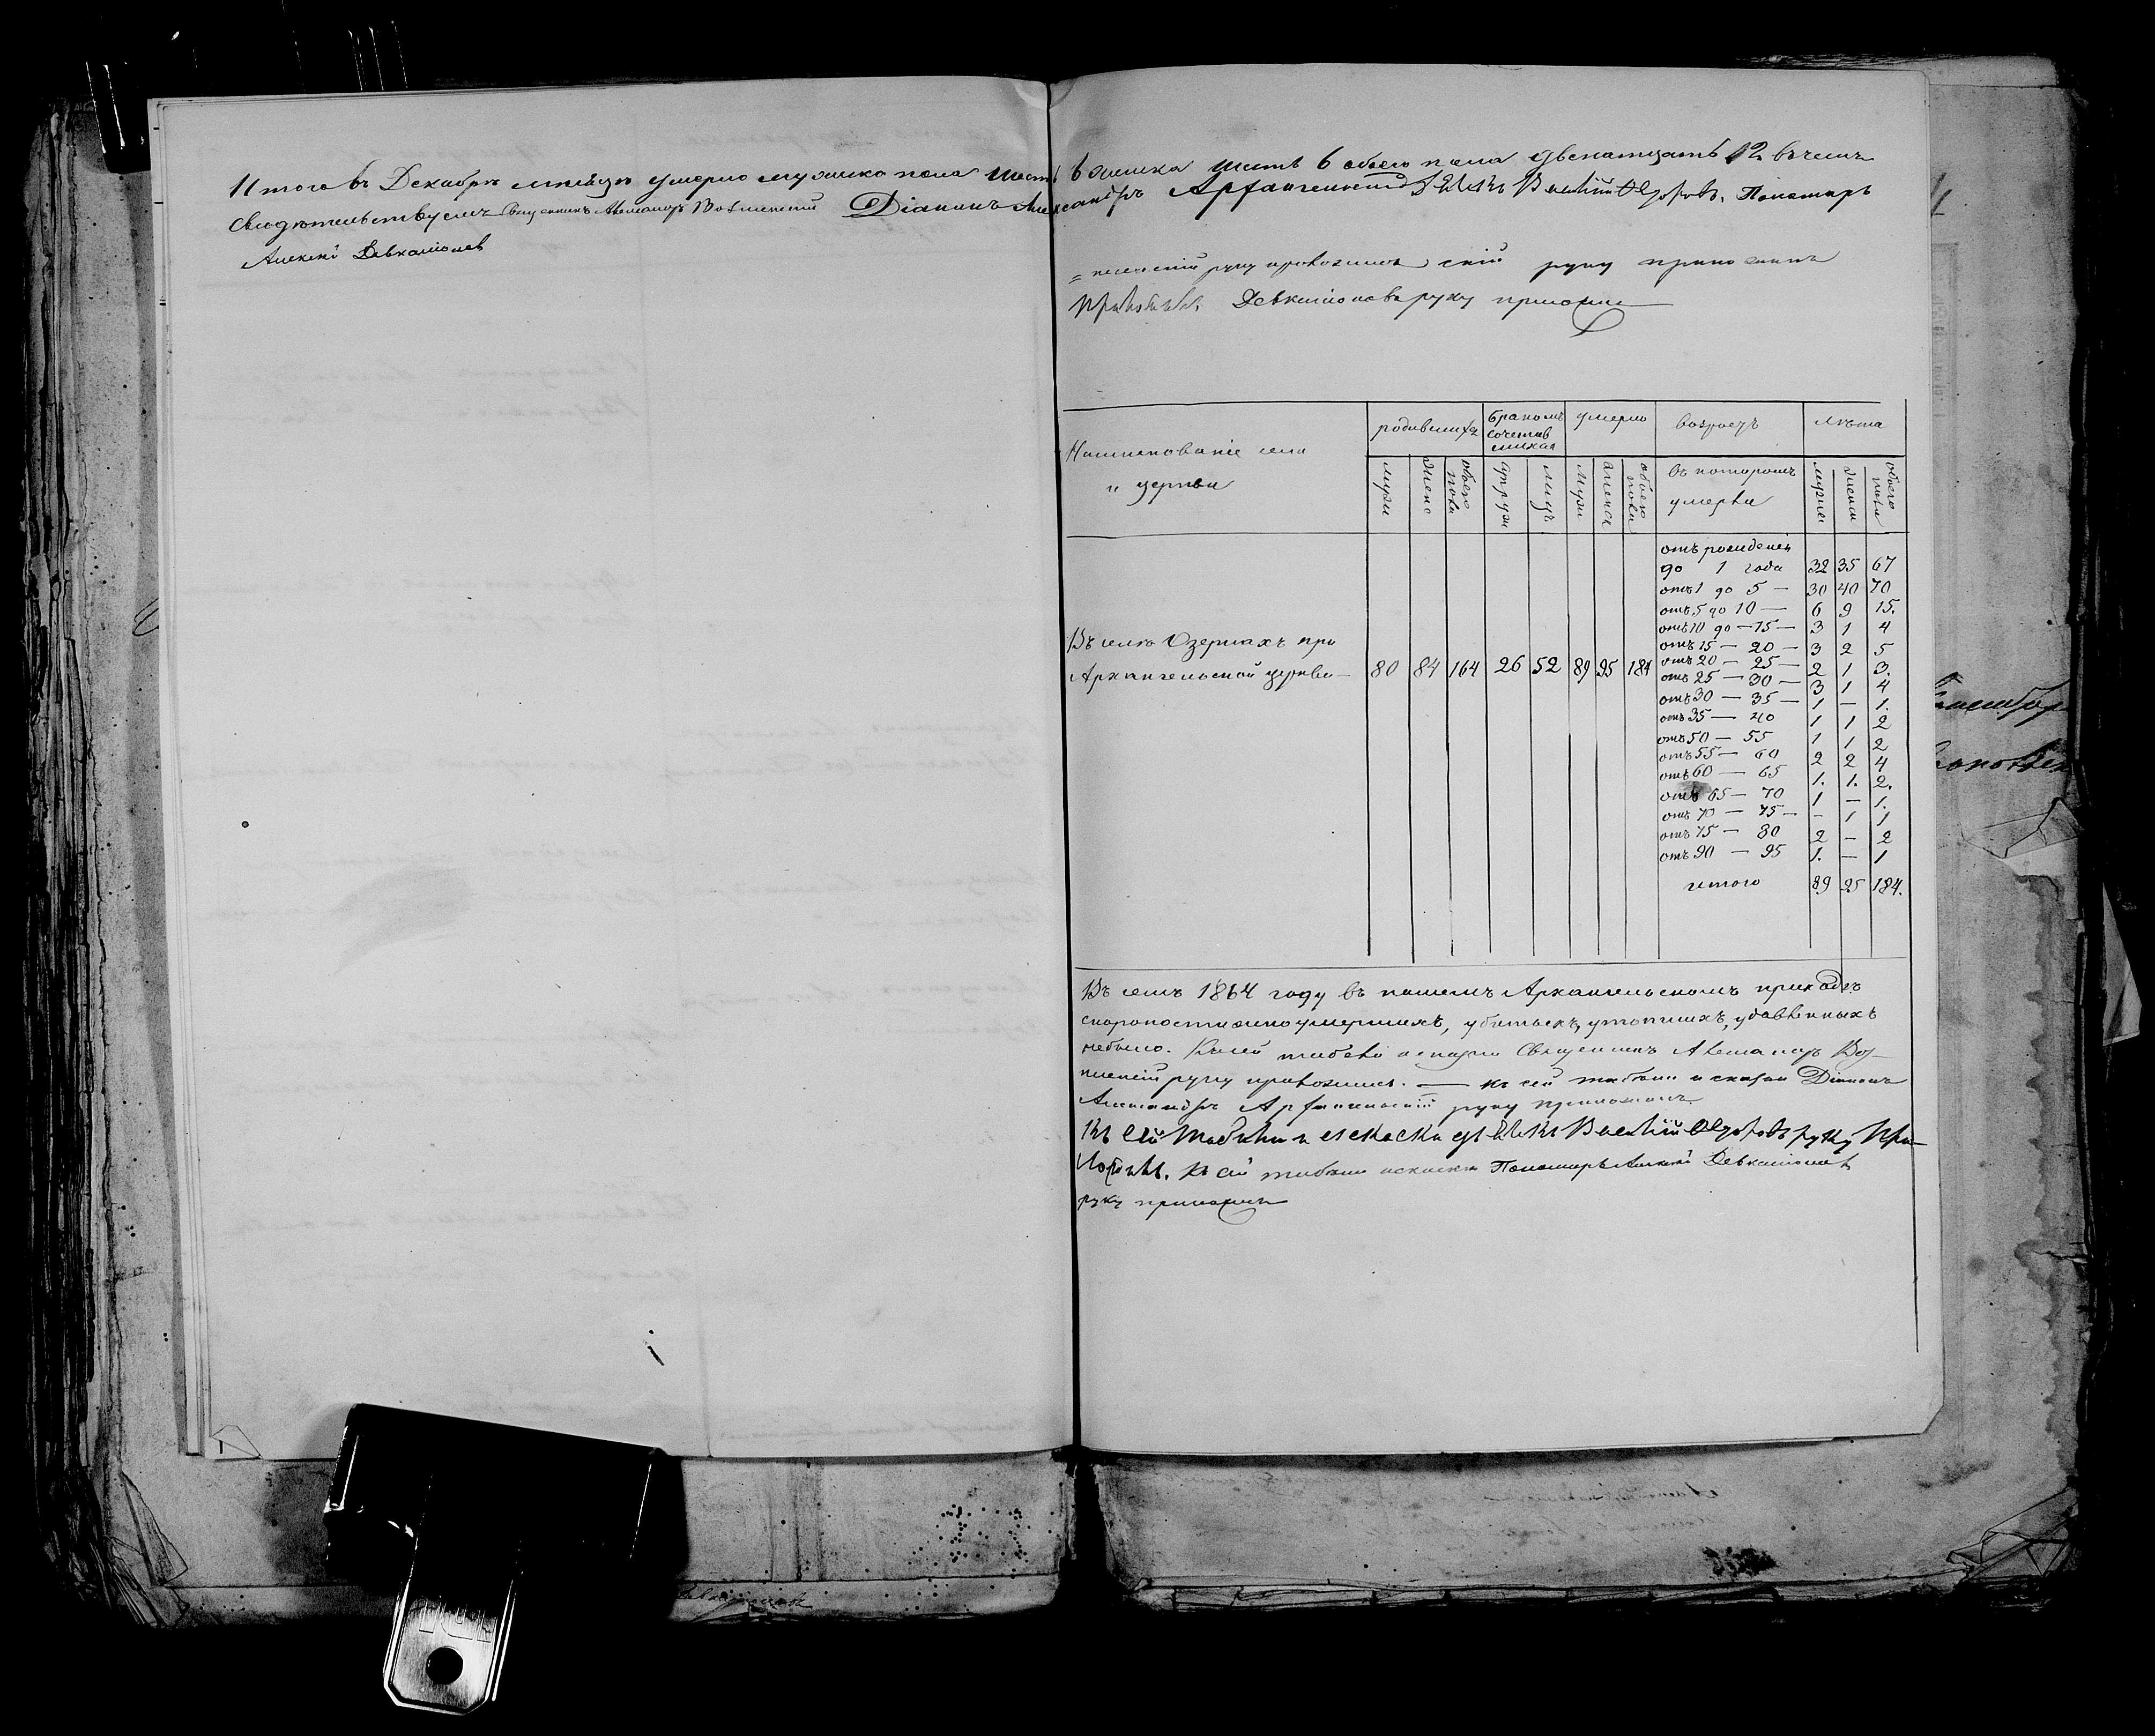 Итого въ Декабрѣ месяцѣ умерло мужска пола шесть 6 женска шесть 6 обоего пола двенатцать 12 въ чемъ
свидѣтельствуемъ Священникъ Александръ Діаконъ Александръ Архангельскій Дьячекъ Василій Ѳедоровъ, Пономарь
Алексѣй Девкаліоновъ
руку приложилъ скій руку приложилъ
приложилъ. Девкаліоновъ руку приложилъ
Наименованіе села
и церкви
родившихся
бракомъ
сочетав
шихся
умерло
возрастъ
лѣта
муж
женс
обоего
пола
супруж
лицъ
муж
женс
обоего
пола
въ которомъ
умерли
мужес
женск
обоего
пола
Въ селѣ Озеркахъ при
Архангельской церкви — 80 84 164 26 52 89 95 184
отъ рожденія
до 1 года 32 35 67
отъ 1 до 5 — 30 40 70
отъ 5 до 10 — 6 9 15.
отъ 10 до — 15 — 3 1 4
отъ 15 — 20 — 3 2 5
отъ 20 — 25 — 2 1 3.
отъ 25 — 30 — 3 1 4
отъ 30 — 35 — 1 — 1.
отъ 35 — 40 1 1 2
отъ 50 — 55 1 1 2
отъ 55 — 60 2 2 4
отъ 60 — 65 1. 1. 2.
отъ 65 — 70 1 — 1.
отъ 70 — 75 — - 1 1
отъ 75 — 80 2 — 2
отъ 90 — 95 1. — 1
итого 89 95 184.
Въ семъ 1864 году въ нашемъ Архангельскомъ приходѣ
скоропостижно умершихъ, убитыхъ, утопшихъ, удавленныхъ
небыло. Къ сей табели и сказки Священникъ Александръ
руку приложилъ. — къ сей табели и сказки Діаконъ
Александръ Архангельскій руку приложилъ.
Къ сей табели и скаски дьячекъ Василій Ѳедоровъ руку при-
ложилъ. Къ сей табели искаски Пономарь Алексѣй Девкаліоновъ
руку приложилъ